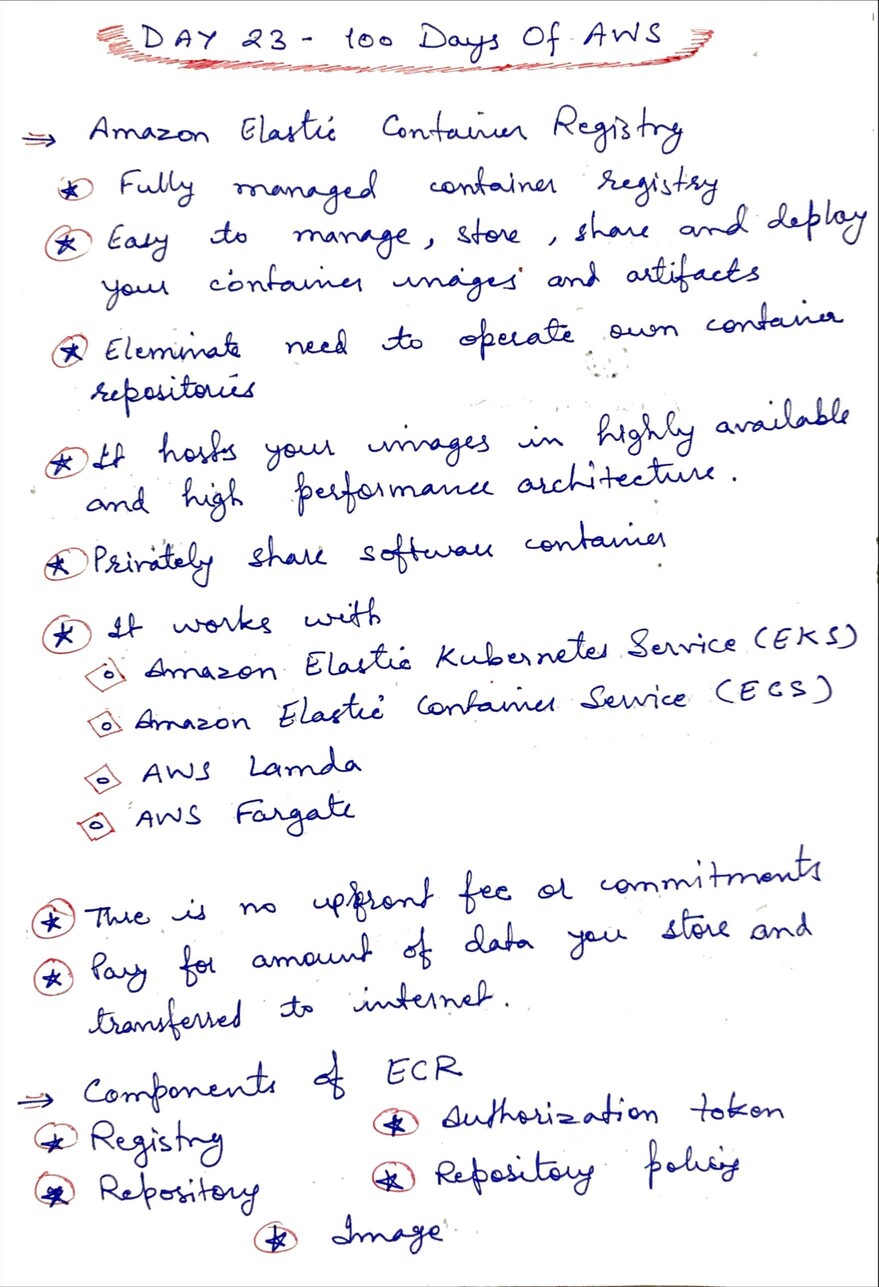 DAY 23 - 100 Days Of AWS
⇒ Amazon Elastic Container Registry
★ Fully managed container registry
★ Easy to manage, store, share and deploy
your container images and artifacts
★ Eleminate need to operate own container
repositories
★ It hosts your images in highly available
and high performance architecture.
★ Privately share software container
★ It works with
Amazon Elastic Kubernetes Service (EKS)
Amazon Elastic Container Service (ECS)
AWS Lamda
AWS Fargate
★ There is no upfront fee or commitments
★ Pay for amount of data you store and
transferred to internet.
⇒ Components of ECR
★ Registry ★ Authorization token
★ Repository ★ Repository policy
★ Image